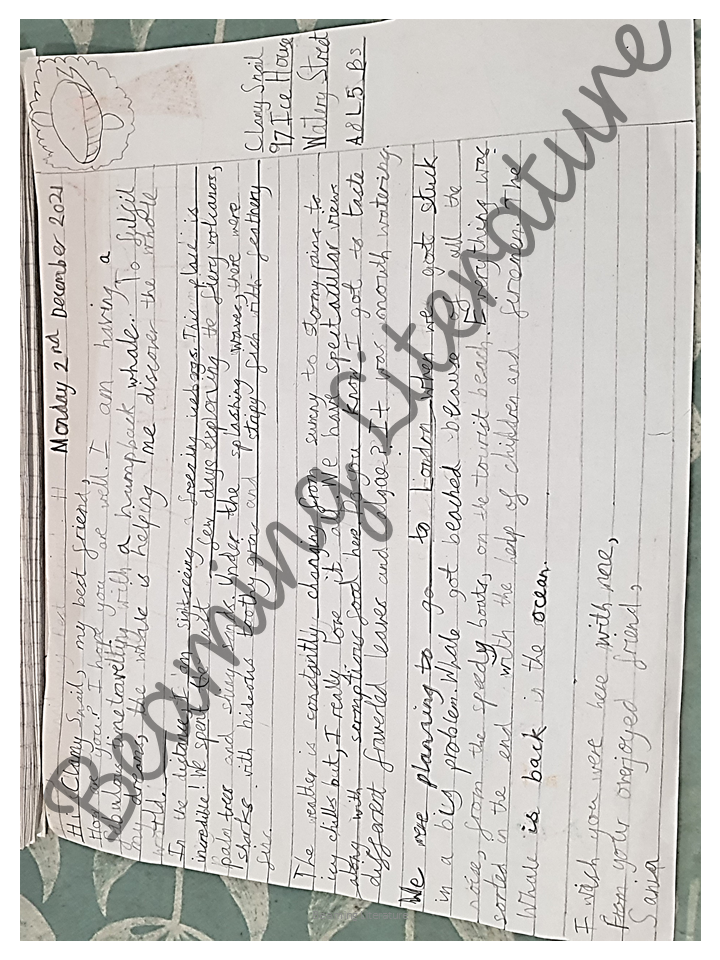 Monday 2nd December 2021
Hi Clamy Snail, my best friend,
How are you? I hope you are well. I am having a
fabulous time travelling with a humpback whale. To fulfil
my dreams, the whale is helping me discover the whole
world.
In the distance I am seeing a freezing icebergs. This place is
incredible! We spent the last few days exploring the fiery volcanos,
palm trees and sunny sands. Under the splashing waves, there were
sharks with hideous toothy grins and stripy fish with feathery
fins.
The weather is constantly changing from sunny to stormy rains to
icy chills but, I really love it all. We have spectacular views
along with scrumptious food here. Do you know I got to taste
different flavored leaves and algae? It was mouth watering.
We were planning to go to London when we got stuck
in a big problem. Whale got beached because of all the
noise, from the speedy boats, on the tourist beach. Everything was
sorted in the end with the help of children and firemen. The
Whale is back is the ocean.
I wish you were here with me,
From your overjoyed friend,
Sania
Clamy Snail
97 Ice House
Watery Street
A8L5 BS
Beaming Literature